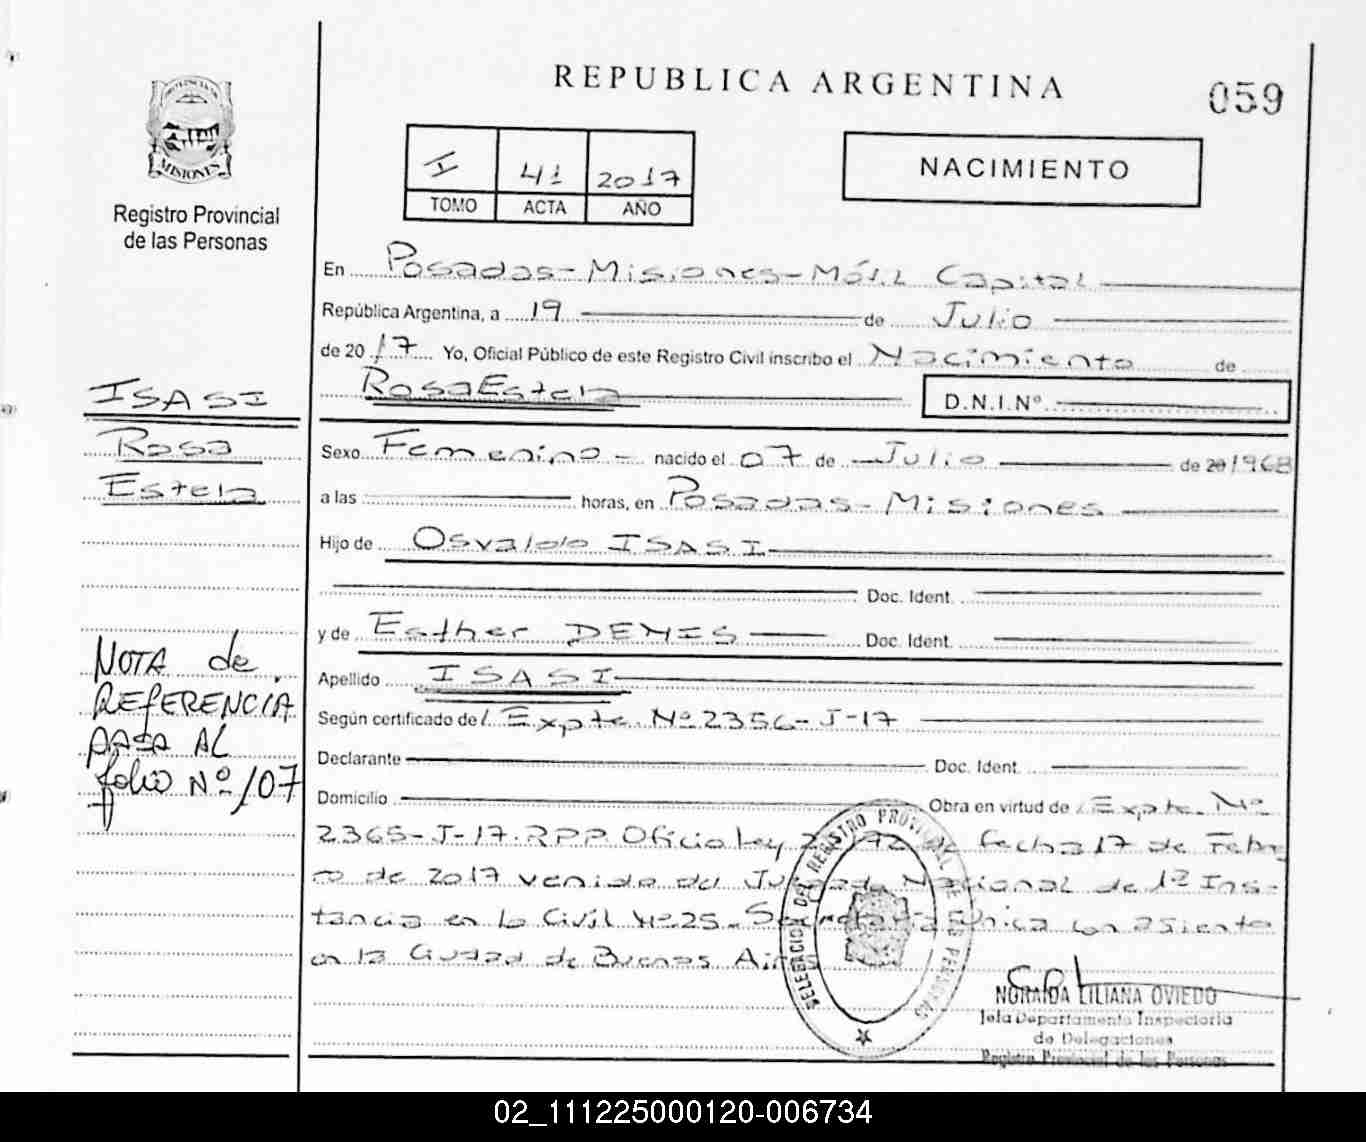 REPUBLICA ARGENTINA
059
MISIONES
Registro Provincial
de las Personas
I 41 2017
TOMO ACTA AÑO
NACIMIENTO
En Posadas-Misiones-Móvil Capital
República Argentina, a 19 de Julio
de 2017 Yo, Oficial Público de este Registro Civil inscribo el Nacimiento de
Rosa Estela D.N.I.Nº
ISASI
Rosa
Estela
Sexo Femenino - nacido el 07 de Julio de 20 1968
a las horas, en Posadas-Misiones
Hijo de Osvaldo ISASI
Doc. Ident.
y de Esther DEMIS Doc. Ident.
Apellido ISASI
Según certificado de Expte. Nº 2356-J-17
Declarante Doc. Ident.
Domicilio Obra en virtud de Expte. Nº
2365-J-17. RPP. Oficio Ley fecha 17 de Febre
ro de 2017 venido del Juzgado Nacional de 1ª Ins-
tancia en lo Civil Nº 25 - Secretaría Única con asiento
en la Ciudad de Buenos Aires
NOTA de
REFERENCIA
PASA AL
folio Nº 107
DELEGACION DEL REGISTRO PROVINCIAL DE LAS PERSONAS
NORAIDA LILIANA OVIEDO
Jefa Departamento Inspectoria
de Delegaciones
Registro Provincial de las Personas
02_111225000120-006734